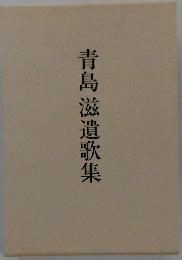 青島滋遺歌集